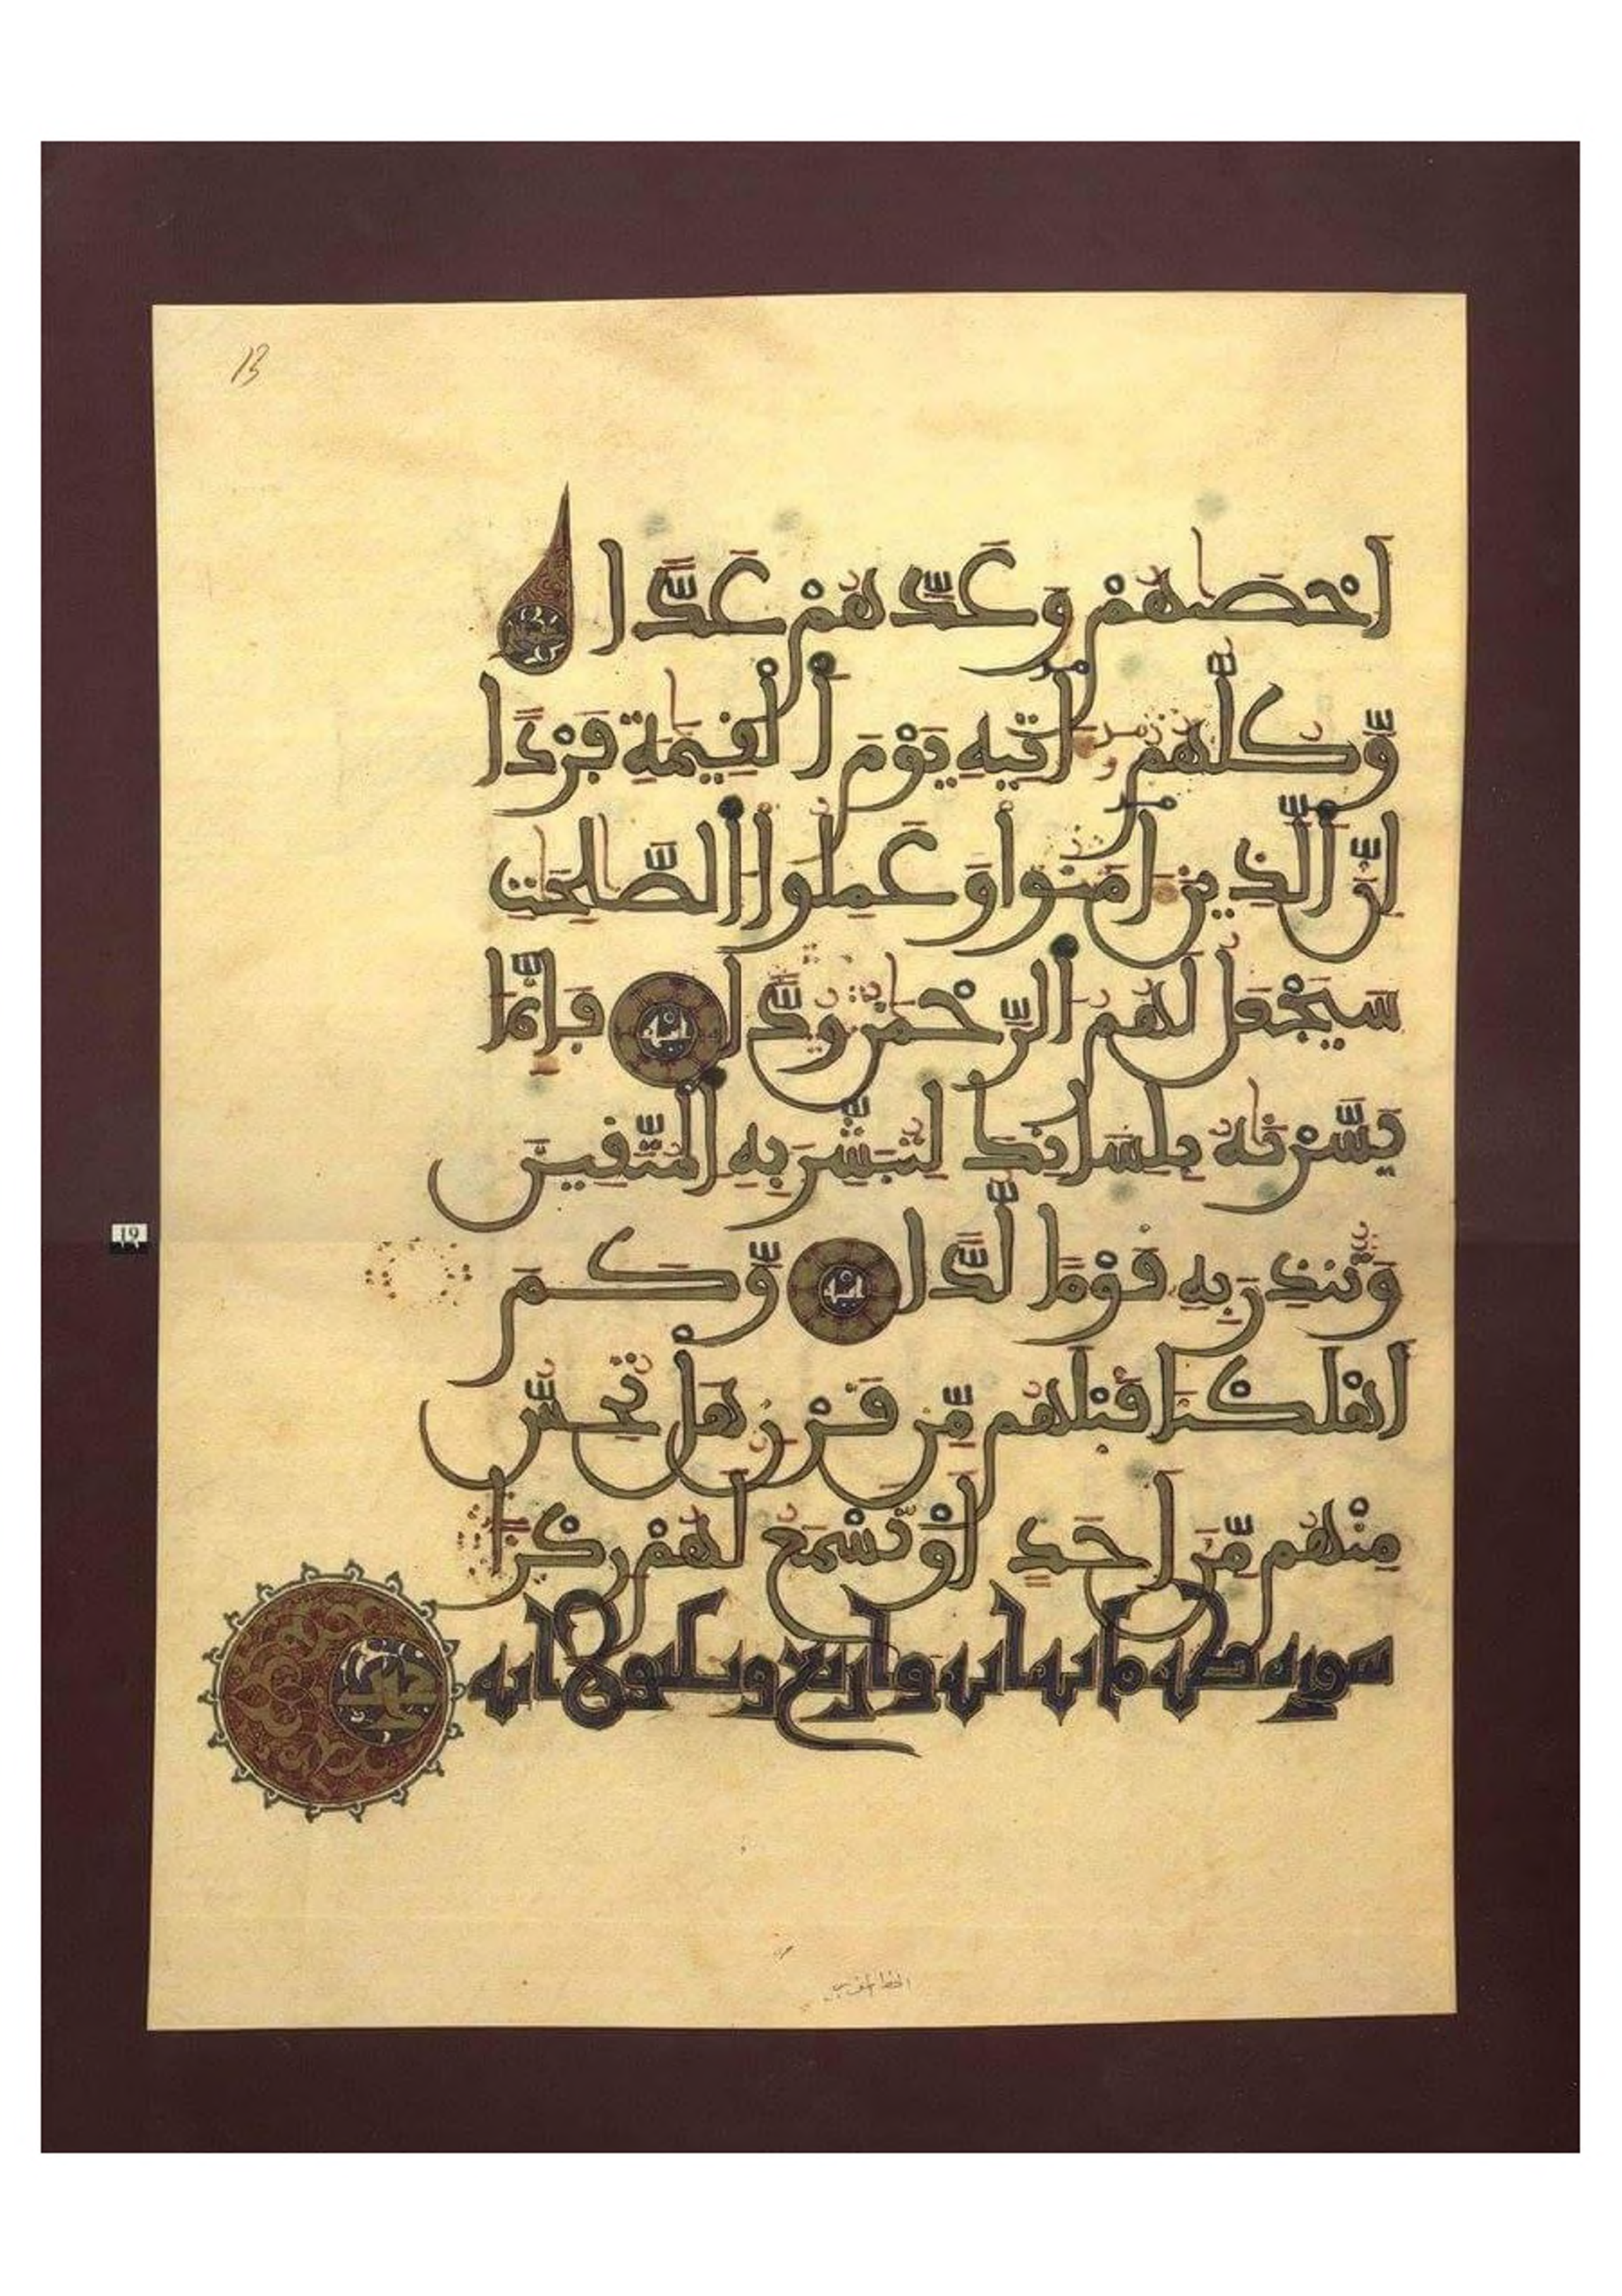 13
احصهم وعدهم عدا
وكلهم اتيه يوم القيمة فردا
ان الذين امنوا وعملوا الصلحت
سيجعل لهم الرحمن ودا اية فانما
يسرنه بلسانك لتبشر به المتقين
وتنذر به قوما لدا اية وكم
اهلكنا قبلهم من قرن هل تحس
منهم من احد او تسمع لهم ركزا
سورة طه ماية اية واربع وثلثون اية
19